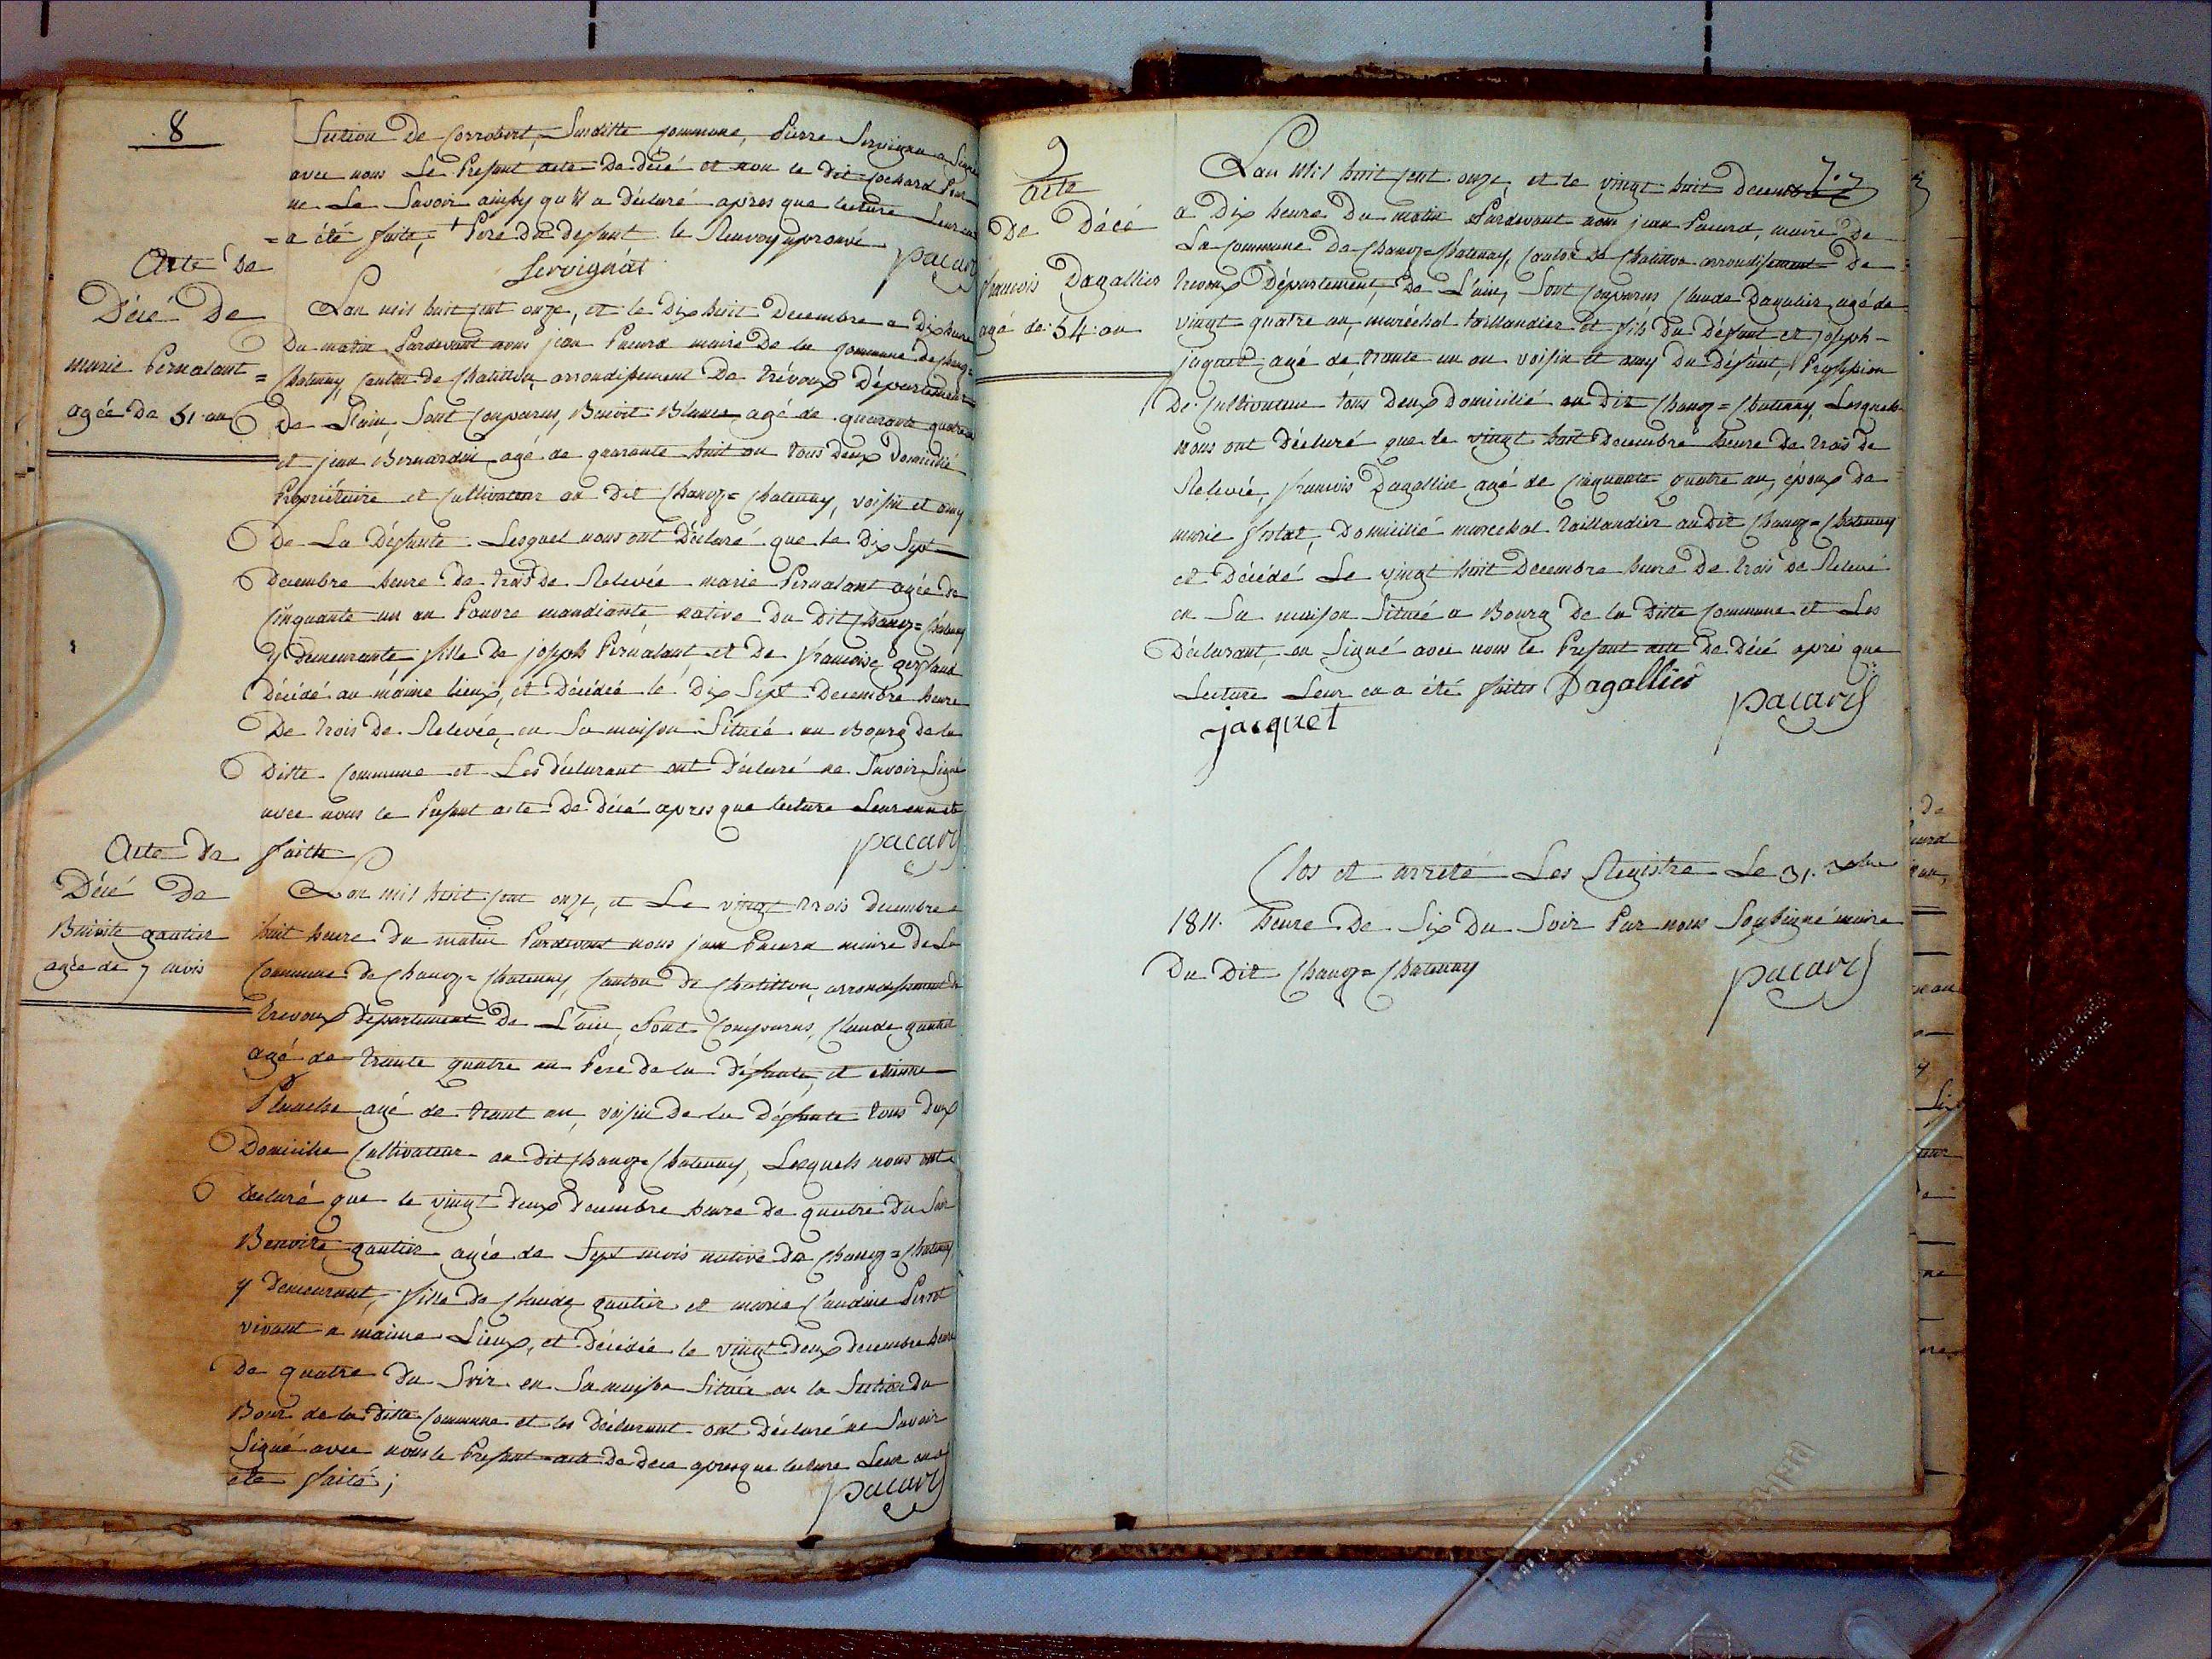 8
Section De Corrobert, Susditte Commune, Pierre Servignat a Signé
avec nous Le Present acte De décé et non le dit Cochard Pour
ne Le Savoir ainsy qu'il a Déclaré apres que lecture Leur en
= a été faite, + Pere du defunt le Renvoy aprouvé
Servignat
pacard
Acte De
Décé De
marie Pernalant =
agée De 51 an
Lan mil huit cent onze, et le Dix huit Decembre a Dix heure
Du matin Pardevant nous jean Pacard maire De la Commune de Chanoz=
Chatenay Canton de Chatillon arrondissement De Trévoux Département
De L'ain, Sont Comparus, Benoit Blanc agé de quarante quatre an
et jean Bernardin agé de quarante huit an tous Deux Domicilié
Propriétaire et Cultivateur au Dit Chanoz=Chatenay, voisin et amy
De La Défunte Lesquel nous ont Déclaré que le Dix Sept
Decembre heure De trois De Relevée marie Pernalant agée de
Cinquante un an Pauvre mandiante native Du Dit Chanoz=Chatenay
y Demeurante fille De joseph Pernalant et De françoise
Décédé au maime lieux, et Décédée le Dix Sept Decembre heure
De trois De Relevée, en Sa maison Situeé au Bourg De la
Ditte Commune et Les déclarant ont Déclaré ne Savoir Signé
avec nous le Present acte De Décé apres que lecture Leur en n été
faitte
pacard
Acte De
Décé De
Benoite gautier
agée de 7 mois
Lan mil huit cent onze, et Le vingt trois decembre a
huit heure du matin Pardevant nous jean Pacard maire De La
Commune de Chanoz=Chatenay, Canton de Chatillon, arrondissement de
Trevoux département De L'ain, Sont Comparus, Claude gautier
agé de trante quatre an Pere De la défunte, et etienne
Planche agé de trant an, voisin De la Défunte tous Deux
Domicilie Cultivateur au Dit Chanoz=Chatenay, Lesquels nous ont
declaré que le vingt deux decembre heure De quatre Du Soir
Benoite gautier agée de Sept mois native De Chanoz=Chatenay
y Demeurant, fille De Claude gautier et marie Claudine Perrot
vivant a maime Lieux, et décédée le vingt deux decembre heure
De quatre du Soir en Sa maison Située au la Section Du
Bour de la ditte Commune et les Déclarant ont Déclaré ne Savoir
Signé avec nous le Present acte De dece apres que lecture Leur en a
été faité;
pacard
9
acte
De Décé
francois Dagallier
agé de 54 an
Lan Mil huit cent onze, et le vingt huit Decembre
a Dix heure Du matin Pardevant nous jean Pacard, maire De
La Commune De Chanoz=Chatenay, Canton De Chatillon arrondissement De
Trevoux Département, De L'ain, Sont Comparus Claude Dagalier agé de
vingt quatre an, maréchal taillandier et fils Du Défunt et joseph
jaquet agé de, trante un an voisin et amy Du défunt, Profession
De Cultivateur tous Deux Domicilié au Dit Chanoz=Chatenay, Lesquels
nous ont Déclaré que le vingt huit Decembre heure De trois De
Relevée, francois Dagallier agé de Cinquante quatre an, époux De
marie, Domicilié marechal taillandier au Dit Chanoz=Chatenay
et Décédé Le vingt huit Decembre heure De trois De Relevé
en Sa maison Situeé a Bourg De la Ditte Commune et Les
Déclarant, on Signé avec nous le Present acte De Décé aprés que
Lecture Leur en a été faites Dagallier
pacard
jacquet
Clos et arreté Les Registre Le 31. Xbre
1811. heure De Six Du Soir Par nous Soussigné maire
Du Dit Chanoz=Chatenay
pacard